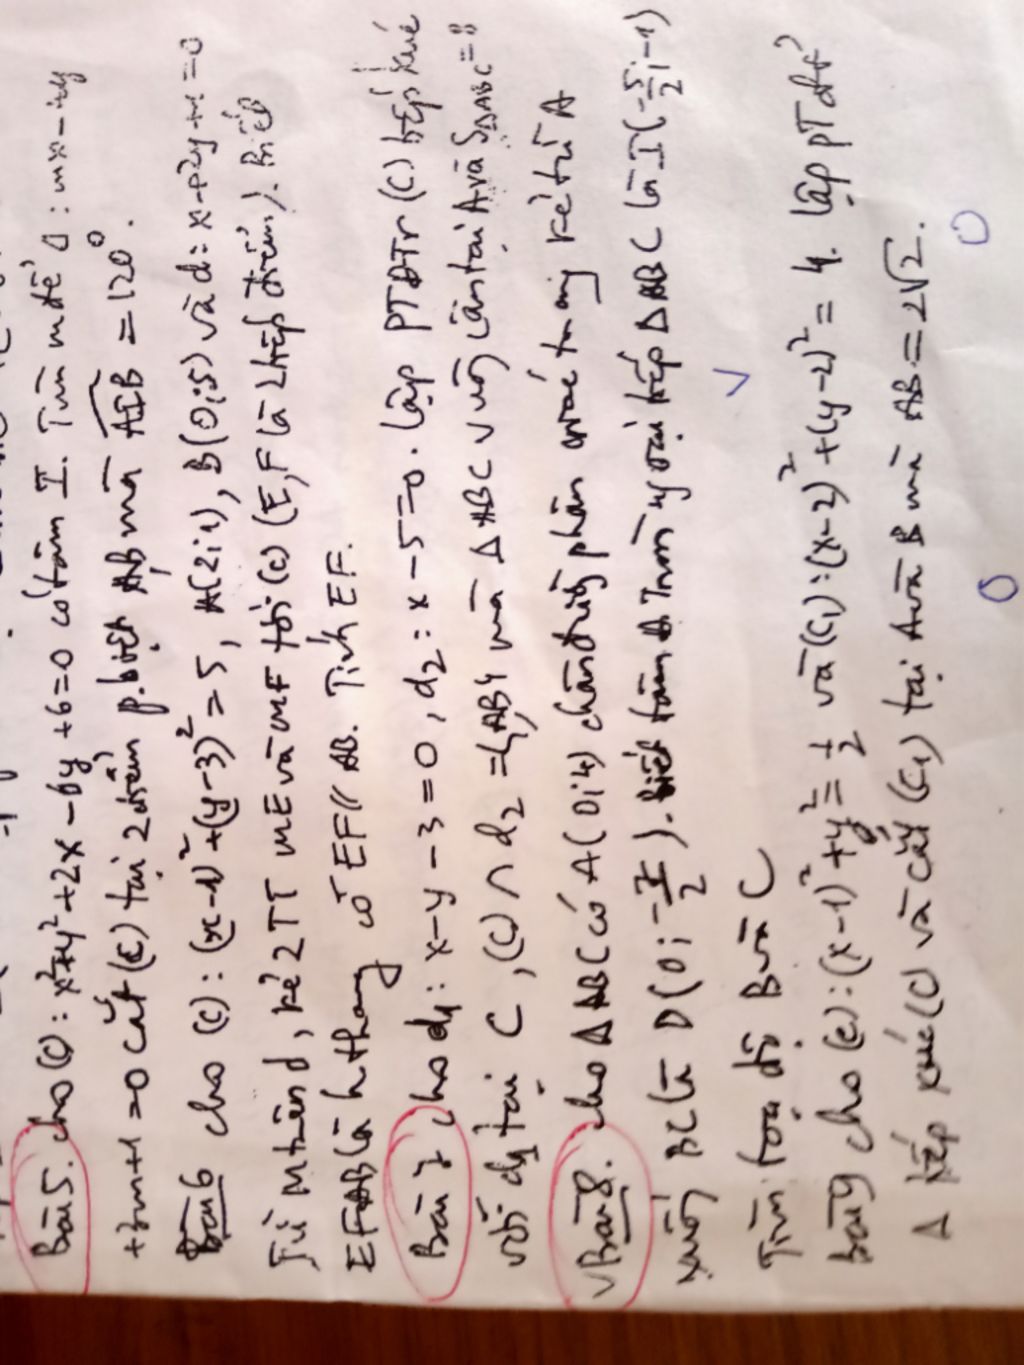 Bài 5. cho (C): x²+y²+2x-6y+6=0 có tâm I. Tìm m để Δ: mx-4y
+3m+1=0 cắt (C) tại 2 điểm p.biệt A,B mà AIB = 120°.
Bài 6 cho (C): (x-1)²+(y-3)²=5, A(2;1), B(0;5) và d: x+2y+1=0
Từ M trên d, kẻ 2TT ME và MF tới (C) (E,F là 2 tiếp điểm). Biết
EFAB là hthang có EF// AB. Tính EF.
Bài 7 cho d₁: x-y-3=0, d₂: x-5=0. Lập PTĐTr (C) tiếp xúc
với d₁ tại C, (C) ∩ d₂ = {A,B} mà Δ ABC vuông cân tại A và SΔABC=8
Bài 8. cho Δ ABC có A(0;4) chân đường phân giác trong kẻ từ A
xuống BC là D(0;-7/2). Biết tâm đường tròn ngoại tiếp Δ ABC là I(-5/2;-1)
Tìm toạ độ B và C
Bài 9 cho (C): (x-1)²+y²=1/2 và (C₁): (x-2)²+(y-2)²=4. Lập PT đt
Δ tiếp xúc (C) và cắt (C₁) tại A và B mà AB=2√2.